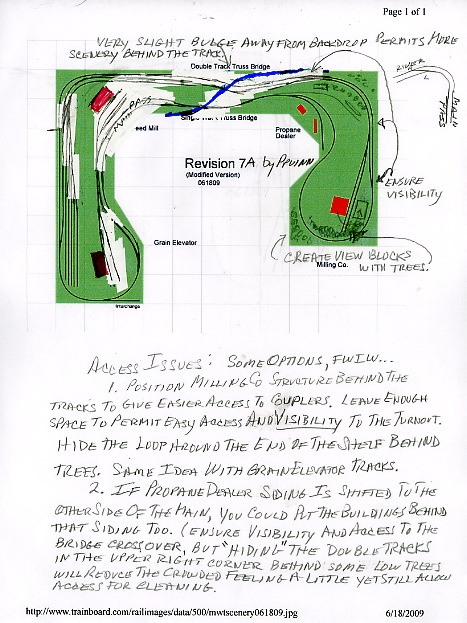 Page 1 of 1
VERY SLIGHT BULGE AWAY FROM BACKDROP PERMITS MORE
SCENERY BEHIND THE TRACK
Double Track Truss Bridge
RIVER
MAIN
TREES
MAIN
PASS
Single Track Truss Bridge
eed Mill
Propane
Dealer
Revision 7A by PPUINN
(Modified Version)
061809
ENSURE
VISIBILITY
Grain Elevator
CREATE VIEW BLOCKS
WITH TREES.
Milling Co.
Interchange
ACCESS ISSUES: SOME OPTIONS, FWIW...
1. POSITION MILLING CO STRUCTURE BEHIND THE
TRACKS TO GIVE EASIER ACCESS TO COUPLERS. LEAVE ENOUGH
SPACE TO PERMIT EASY ACCESS AND VISIBILITY TO THE TURNOUT.
HIDE THE LOOP AROUND THE END OF THE SHELF BEHIND
TREES. SAME IDEA WITH GRAIN ELEVATOR TRACKS.
2. IF PROPANE DEALER SIDING IS SHIFTED TO THE
OTHER SIDE OF THE MAIN, YOU COULD PUT THE BUILDINGS BEHIND
THAT SIDING TOO. (ENSURE VISIBILITY AND ACCESS TO THE
BRIDGE CROSSOVER, BUT "HIDING" THE DOUBLE TRACKS
IN THE UPPER RIGHT CORNER BEHIND SOME LOW TREES
WILL REDUCE THE CROWDED FEELING A LITTLE YET STILL ALLOW
ACCESS FOR CLEANING.
http://www.trainboard.com/railimages/data/500/mwtscenery061809.jpg
6/18/2009